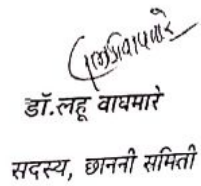 डॉ.लहू वाघमारे
सदस्य, छाननी समिती